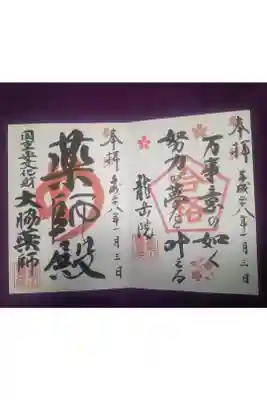 奉拝
平成廿八年一月三日
万事意の如く
努力 夢を叶える
合格
龍岳院
奉拝
平成廿八年一月三日
薬師殿
国重要文化財
大 薬師